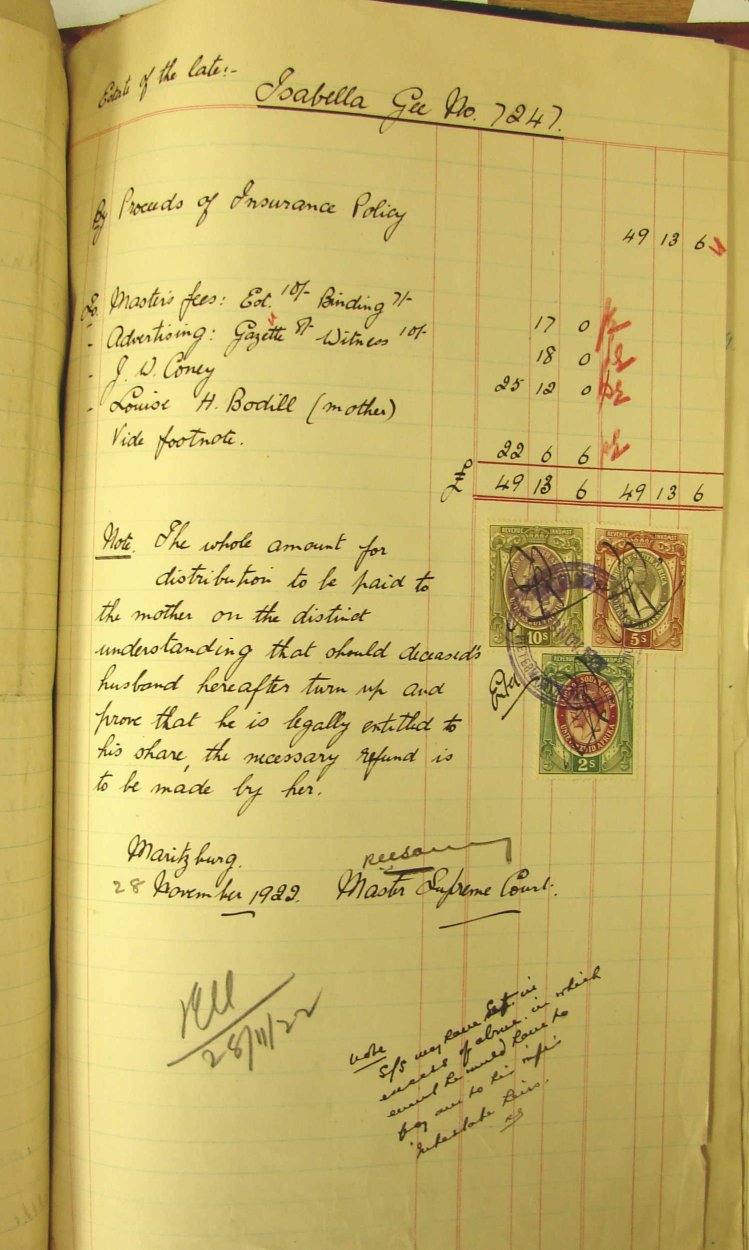 Estate of the late:-
Isabella Gee No. 7247.
By Proceeds of Insurance Policy 49 13 6
To. Master's fees: Est. 10/- Binding 7/- 17 0
- Advertising: Gazette 8/- Witness 10/- 18 0
- J. W. Coney 25 12 0
- Louise H. Bodill (mother)
Vide footnote. 22 6 6
£ 49 13 6 49 13 6
Note. The whole amount for
distribution to be paid to
the mother on the distinct
understanding that should deceased's
husband hereafter turn up and
prove that he is legally entitled to
his share, the necessary refund is
to be made by her.
REVENUE INKOMST
10s
REVENUE INKOMST
5s
REVENUE INKOMST
2s
Maritzburg.
28 November 1922. Master Supreme Court.
28/11/22
Note
S/S may have in
excess of above in which
event he would have to
pay over to his wife's
intestate heirs.